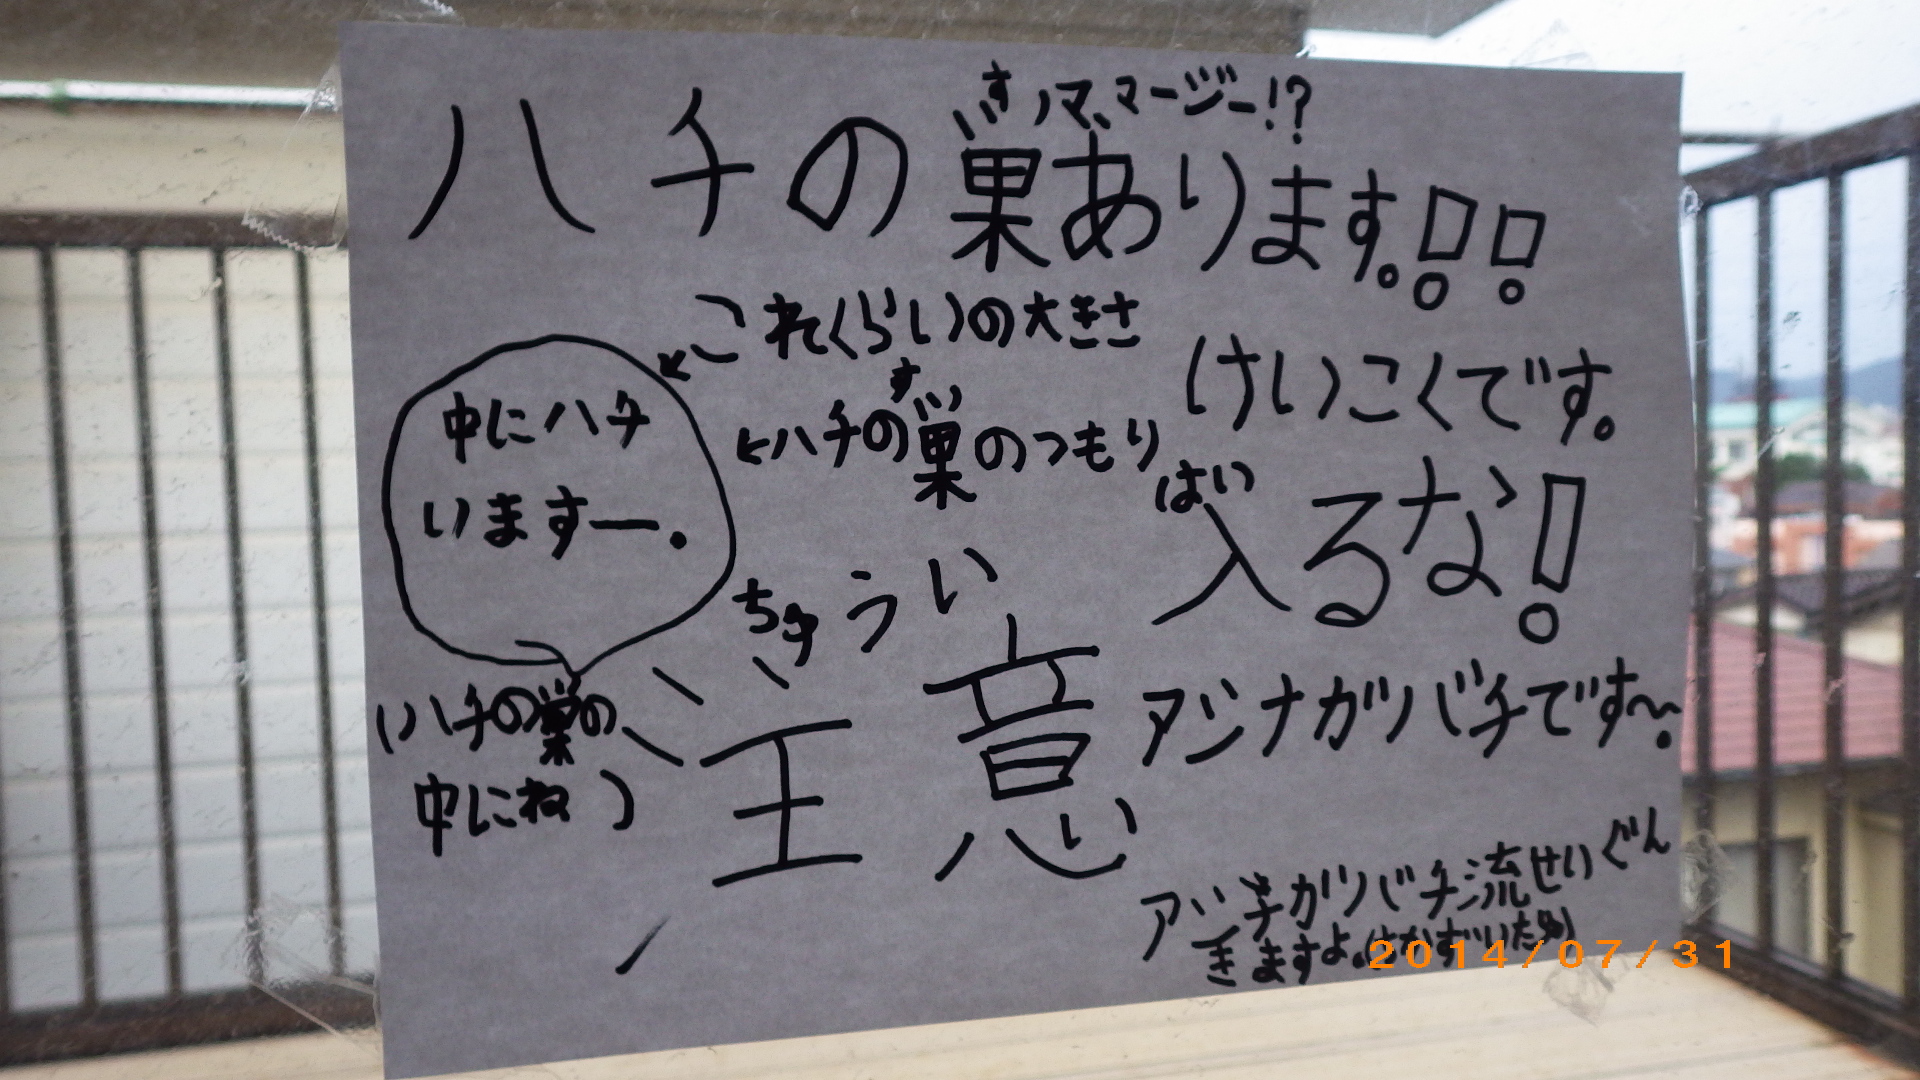 す ノマ、マージー!?
ハチの巣あります。!!
←これくらいの大きさ
す
←ハチの巣のつもり
中にハチ
いますー.
(ハチの巣の
中にね)
けいこくです。
はい
入るな!
ちゅうい
注意
アシナガバチです〜.
アシナガバチ流せいぐん
きますよ。
2014/07/31